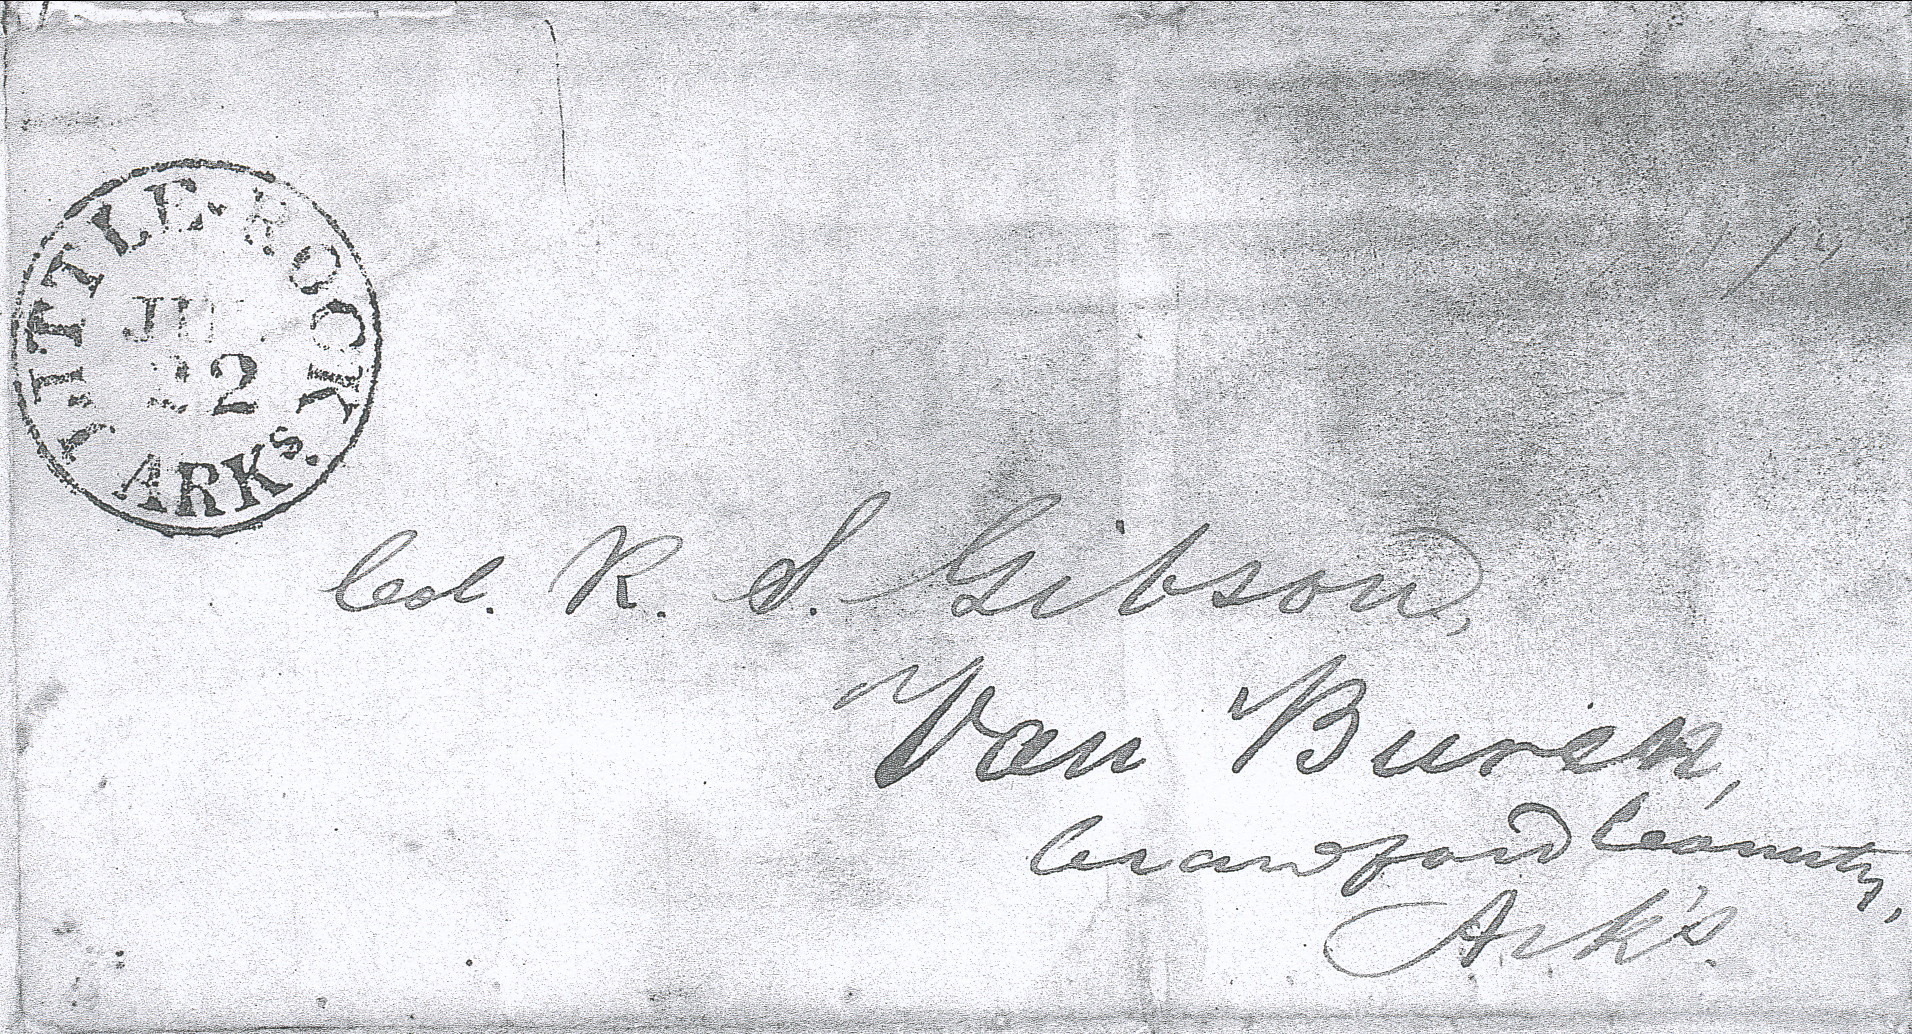 LITTLE-ROCK
22
ARKs.
Col. R. S. Gibson,
Van Buren,
Crawford County,
Ark's.